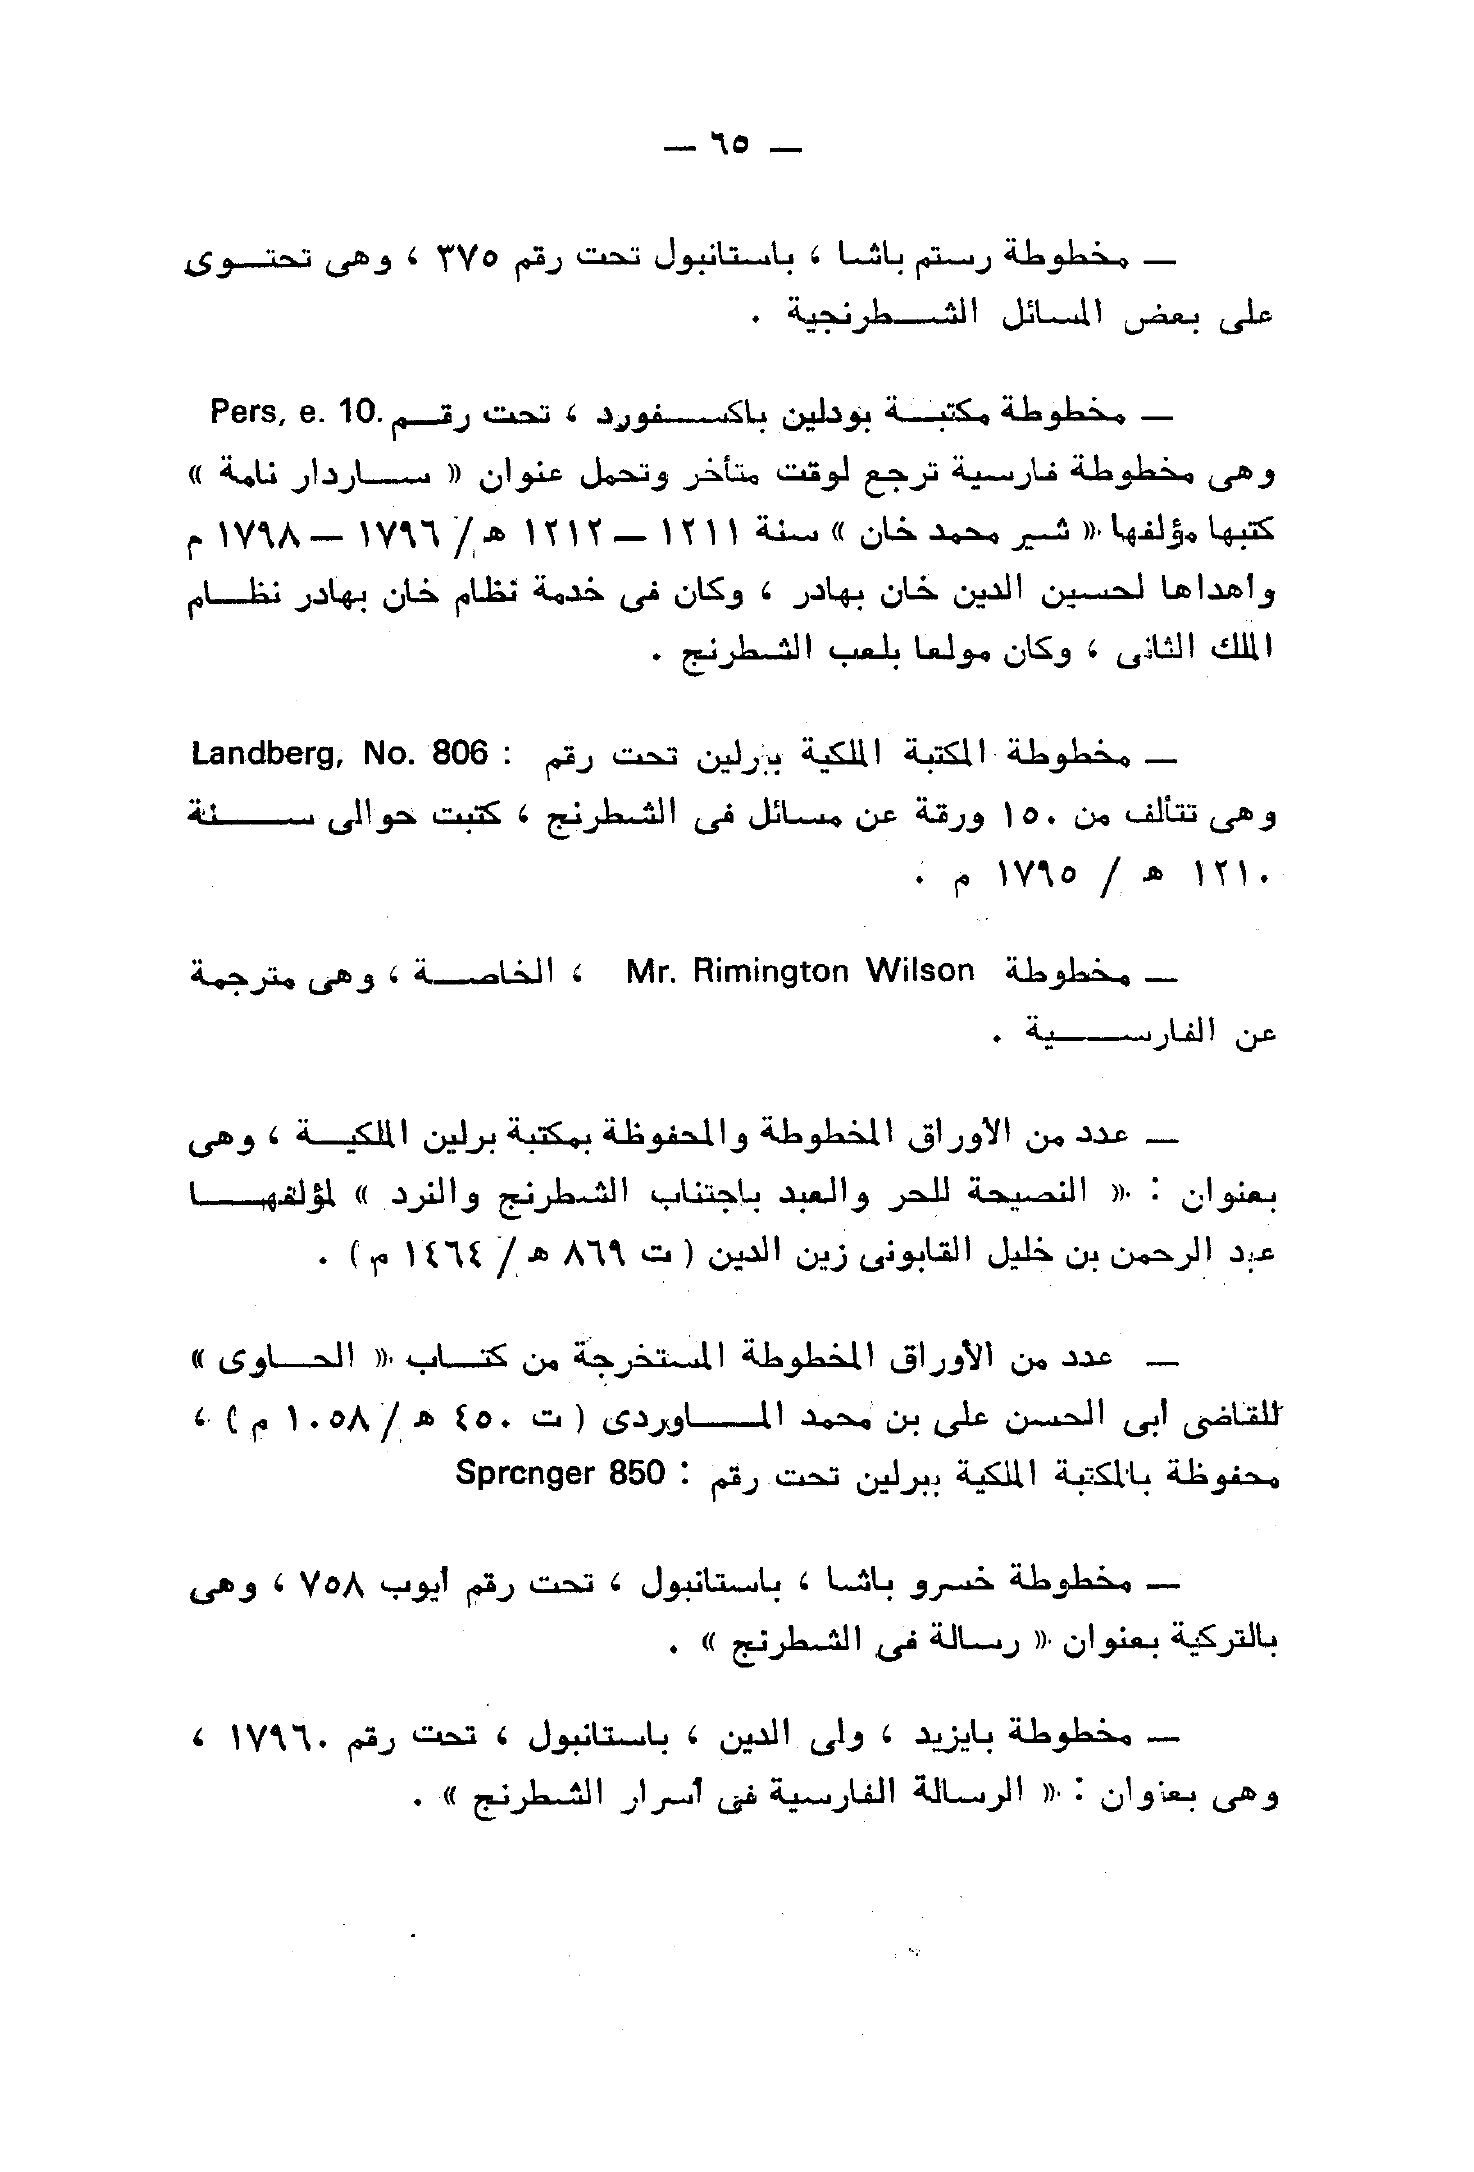 — ٦٥ —
— مخطوطة رستم باشا ، باستانبول تحت رقم ٣٧٥ ، وهى تحتوى
على بعض المسائل الشطرنجية .
— مخطوطة مكتبة بودلين باكسفورد ، تحت رقم .Pers, e. 10
وهى مخطوطة فارسية ترجع لوقت متأخر وتحمل عنوان « ساردار نامة »
كتبها مؤلفها « شير محمد خان » سنة ١٢١١ — ١٢١٢ هـ / ١٧٩٦ — ١٧٩٨ م
وأهداها لحسين الدين خان بهادر ، وكان فى خدمة نظام خان بهادر نظام
الملك الثانى ، وكان مولعا بلعب الشطرنج .
— مخطوطة المكتبة الملكية ببرلين تحت رقم : Landberg, No. 806
وهى تتألف من ١٥٠ ورقة عن مسائل فى الشطرنج ، كتبت حوالى سنة
١٢١٠ هـ / ١٧٩٥ م .
— مخطوطة Mr. Rimington Wilson ، الخاصة ، وهى مترجمة
عن الفارسية .
— عدد من الاوراق المخطوطة والمحفوظة بمكتبة برلين الملكية ، وهى
بعنوان : « النصيحة للحر والعبد باجتناب الشطرنج والنرد » لمؤلفها
عبد الرحمن بن خليل القابونى زين الدين ( ت ٨٦٩ هـ / ١٤٦٤ م ) .
— عدد من الأوراق المخطوطة المستخرجة من كتاب « الحاوى »
للقاضى ابى الحسن على بن محمد الماوردى ( ت ٤٥٠ هـ / ١٠٥٨ م ) ،
محفوظة بالمكتبة الملكية ببرلين تحت رقم : Sprcnger 850
— مخطوطة خسرو باشا ، باستانبول ، تحت رقم أيوب ٧٥٨ ، وهى
بالتركية بعنوان « رسالة فى الشطرنج » .
— مخطوطة بايزيد ، ولى الدين ، باستانبول ، تحت رقم ١٧٩٦٠ ،
وهى بعنوان : « الرسالة الفارسية فى أسرار الشطرنج » .